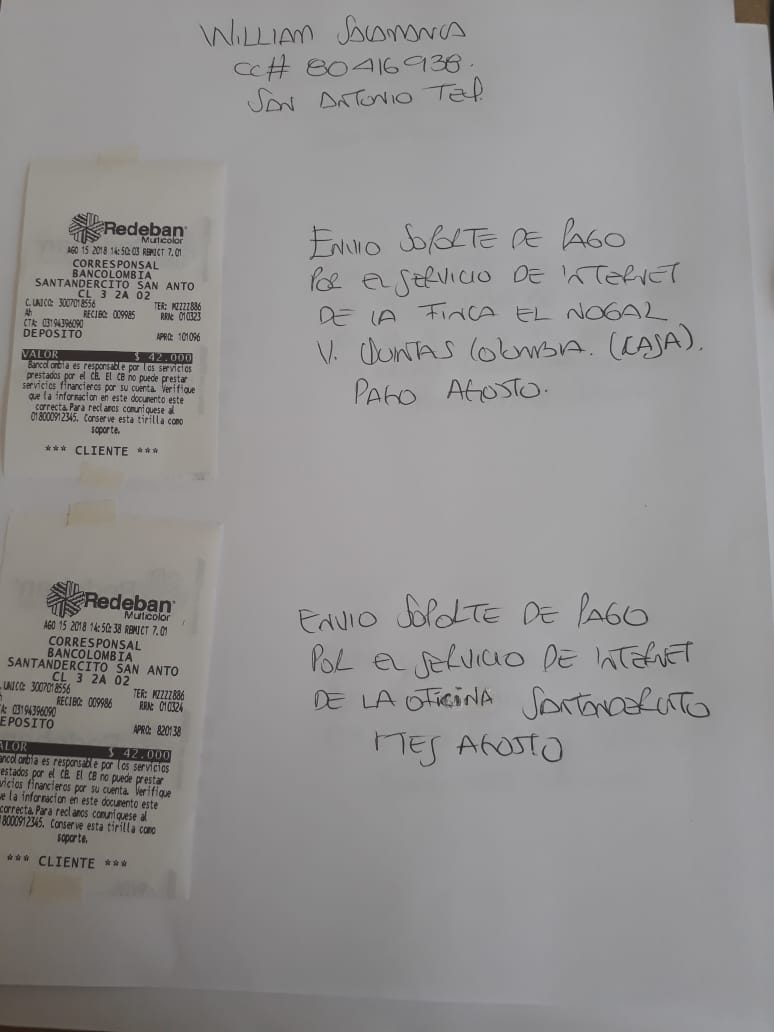 WILLIAM SALAMANCA
CC# 80416938.
SAN ANTONIO TEQ.
Redeban
Multicolor
AGO 15 2018 14:50:03 RBMICT 7.01
CORRESPONSAL
BANCOLOMBIA
SANTANDERCITO SAN ANTO
CL 3 2A 02
C.UNICO: 3007018556 TER: MZZZZ886
Ah RECIBO: 009985 RRN: 010323
CTA: 03194396090
DEPOSITO APRO: 101096
VALOR $ 42.000
Bancolombia es responsable por los servicios
prestados por el CB. El CB no puede prestar
servicios financieros por su cuenta. Verifique
que la informacion en este documento este
correcta. Para reclamos comuniquese al
018000912345. Conserve esta tirilla como
soporte.
*** CLIENTE ***
ENVIO SOPORTE DE PAGO
POR EL SERVICIO DE INTERNET
DE LA FINCA EL NOGAL
V. QUINTAS COLOMBIA. (CASA).
PAGO AGOSTO.
Redeban
Multicolor
AGO 15 2018 14:50:38 RBMICT 7.01
CORRESPONSAL
BANCOLOMBIA
SANTANDERCITO SAN ANTO
CL 3 2A 02
.UNICO: 3007018556 TER: MZZZZ886
h RECIBO: 009986 RRN: 010324
A: 03194396090
EPOSITO APRO: 820138
ALOR $ 42.000
ancolombia es responsable por los servicios
estados por el CB. El CB no puede prestar
vicios financieros por su cuenta. Verifique
e la informacion en este documento este
correcta. Para reclamos comuniquese al
18000912345. Conserve esta tirilla como
soporte.
*** CLIENTE ***
ENVIO SOPORTE DE PAGO
POR EL SERVICIO DE INTERNET
DE LA OFICINA SANTANDERCITO
MES AGOSTO